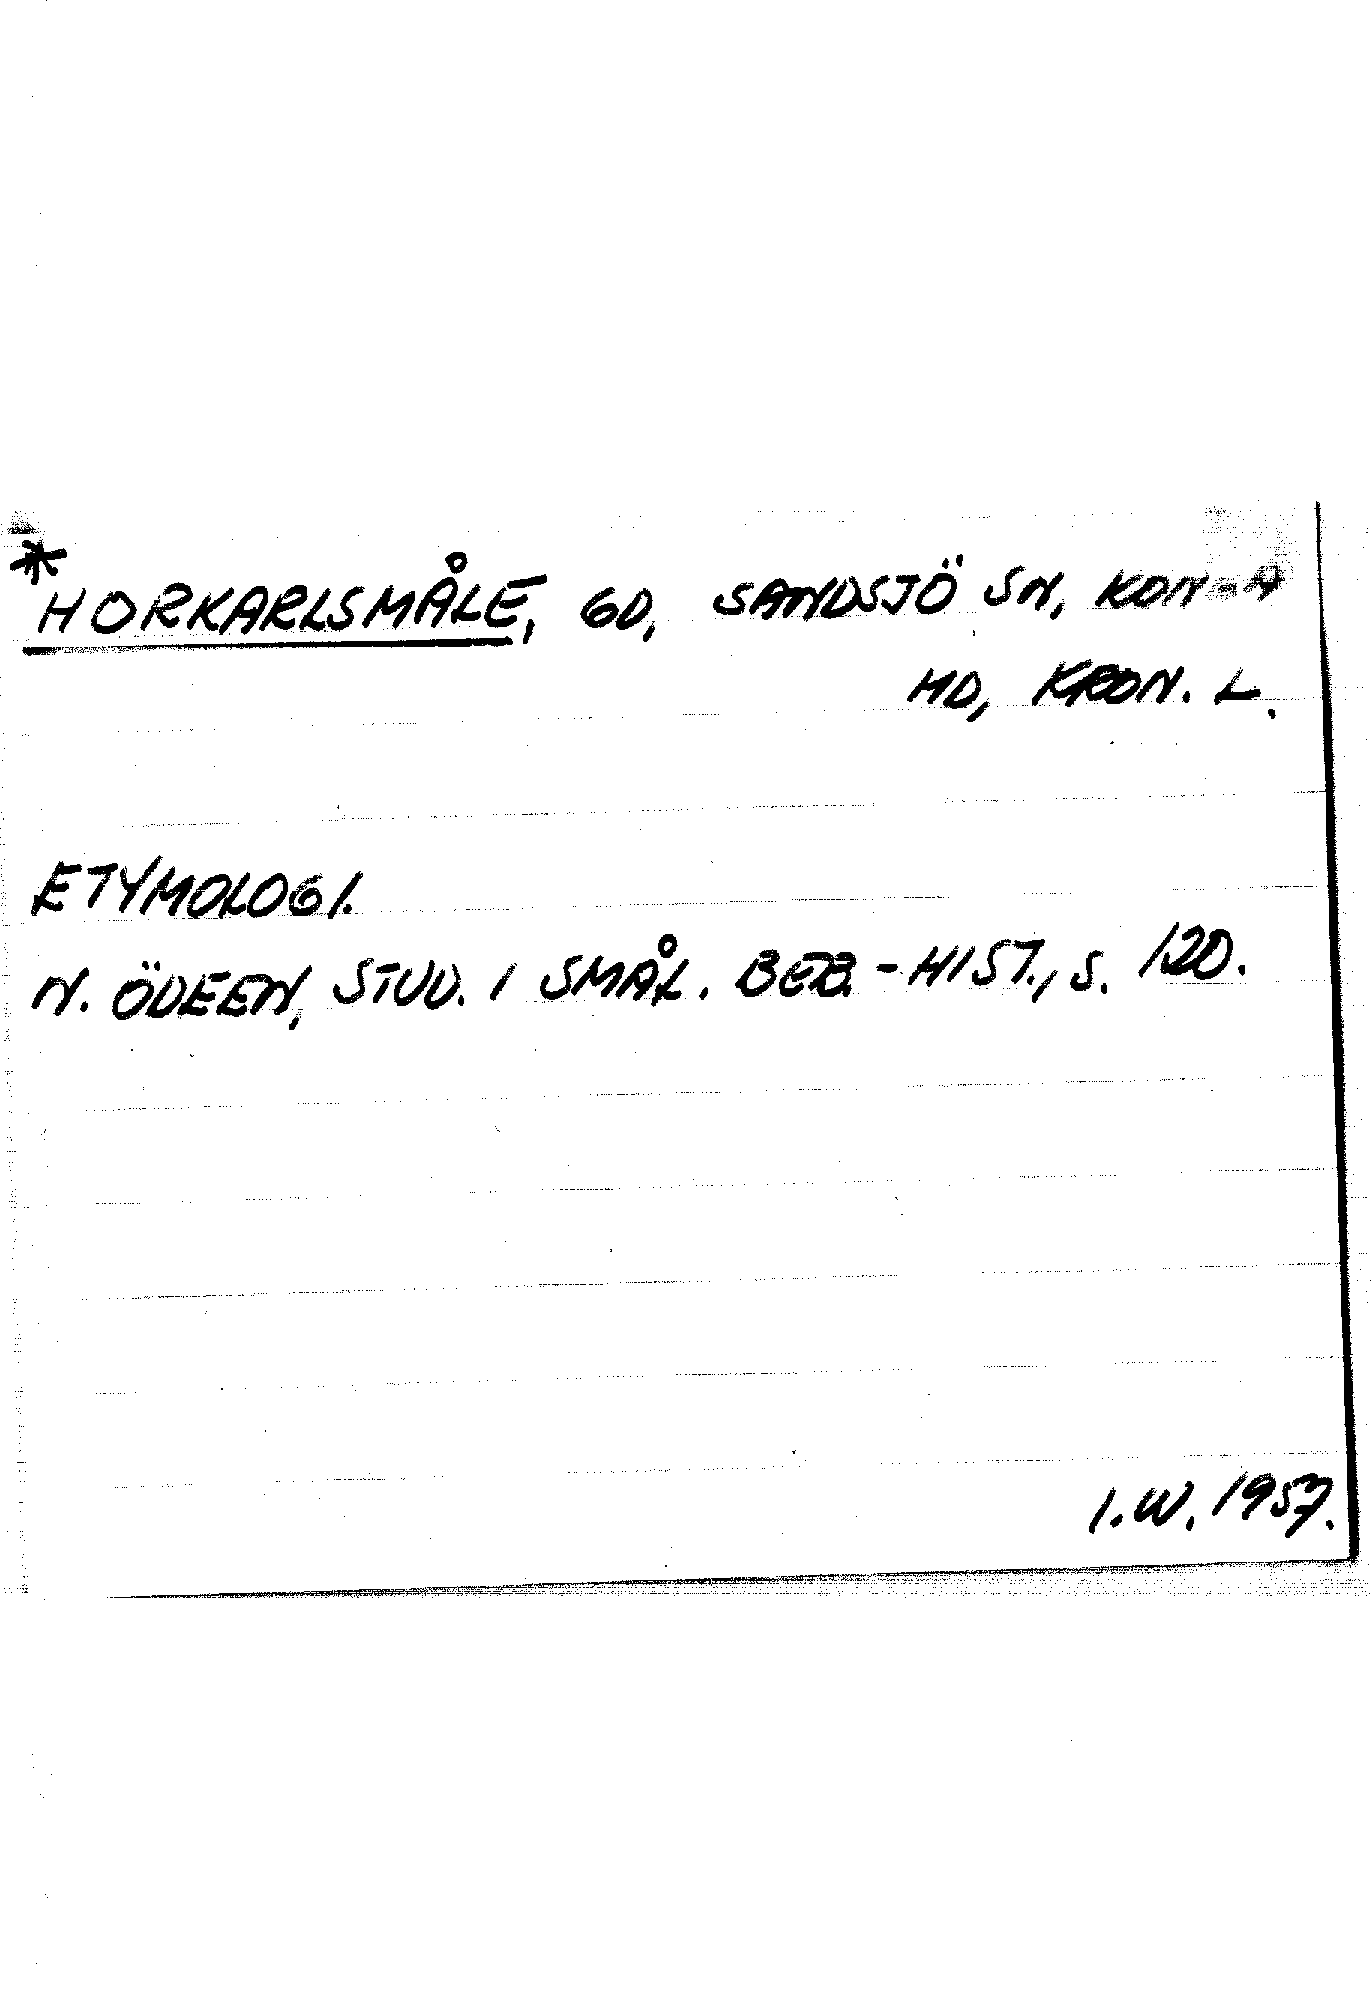 *HORKARLSMÅLE, GD, SANDSJÖ SN, KON-A
HD, KRON. L.
ETYMOLOGI.
N. ÖDEEN, STUD. I SMÅL. BEB.-HIST., S. 120.
I.W. 1957.